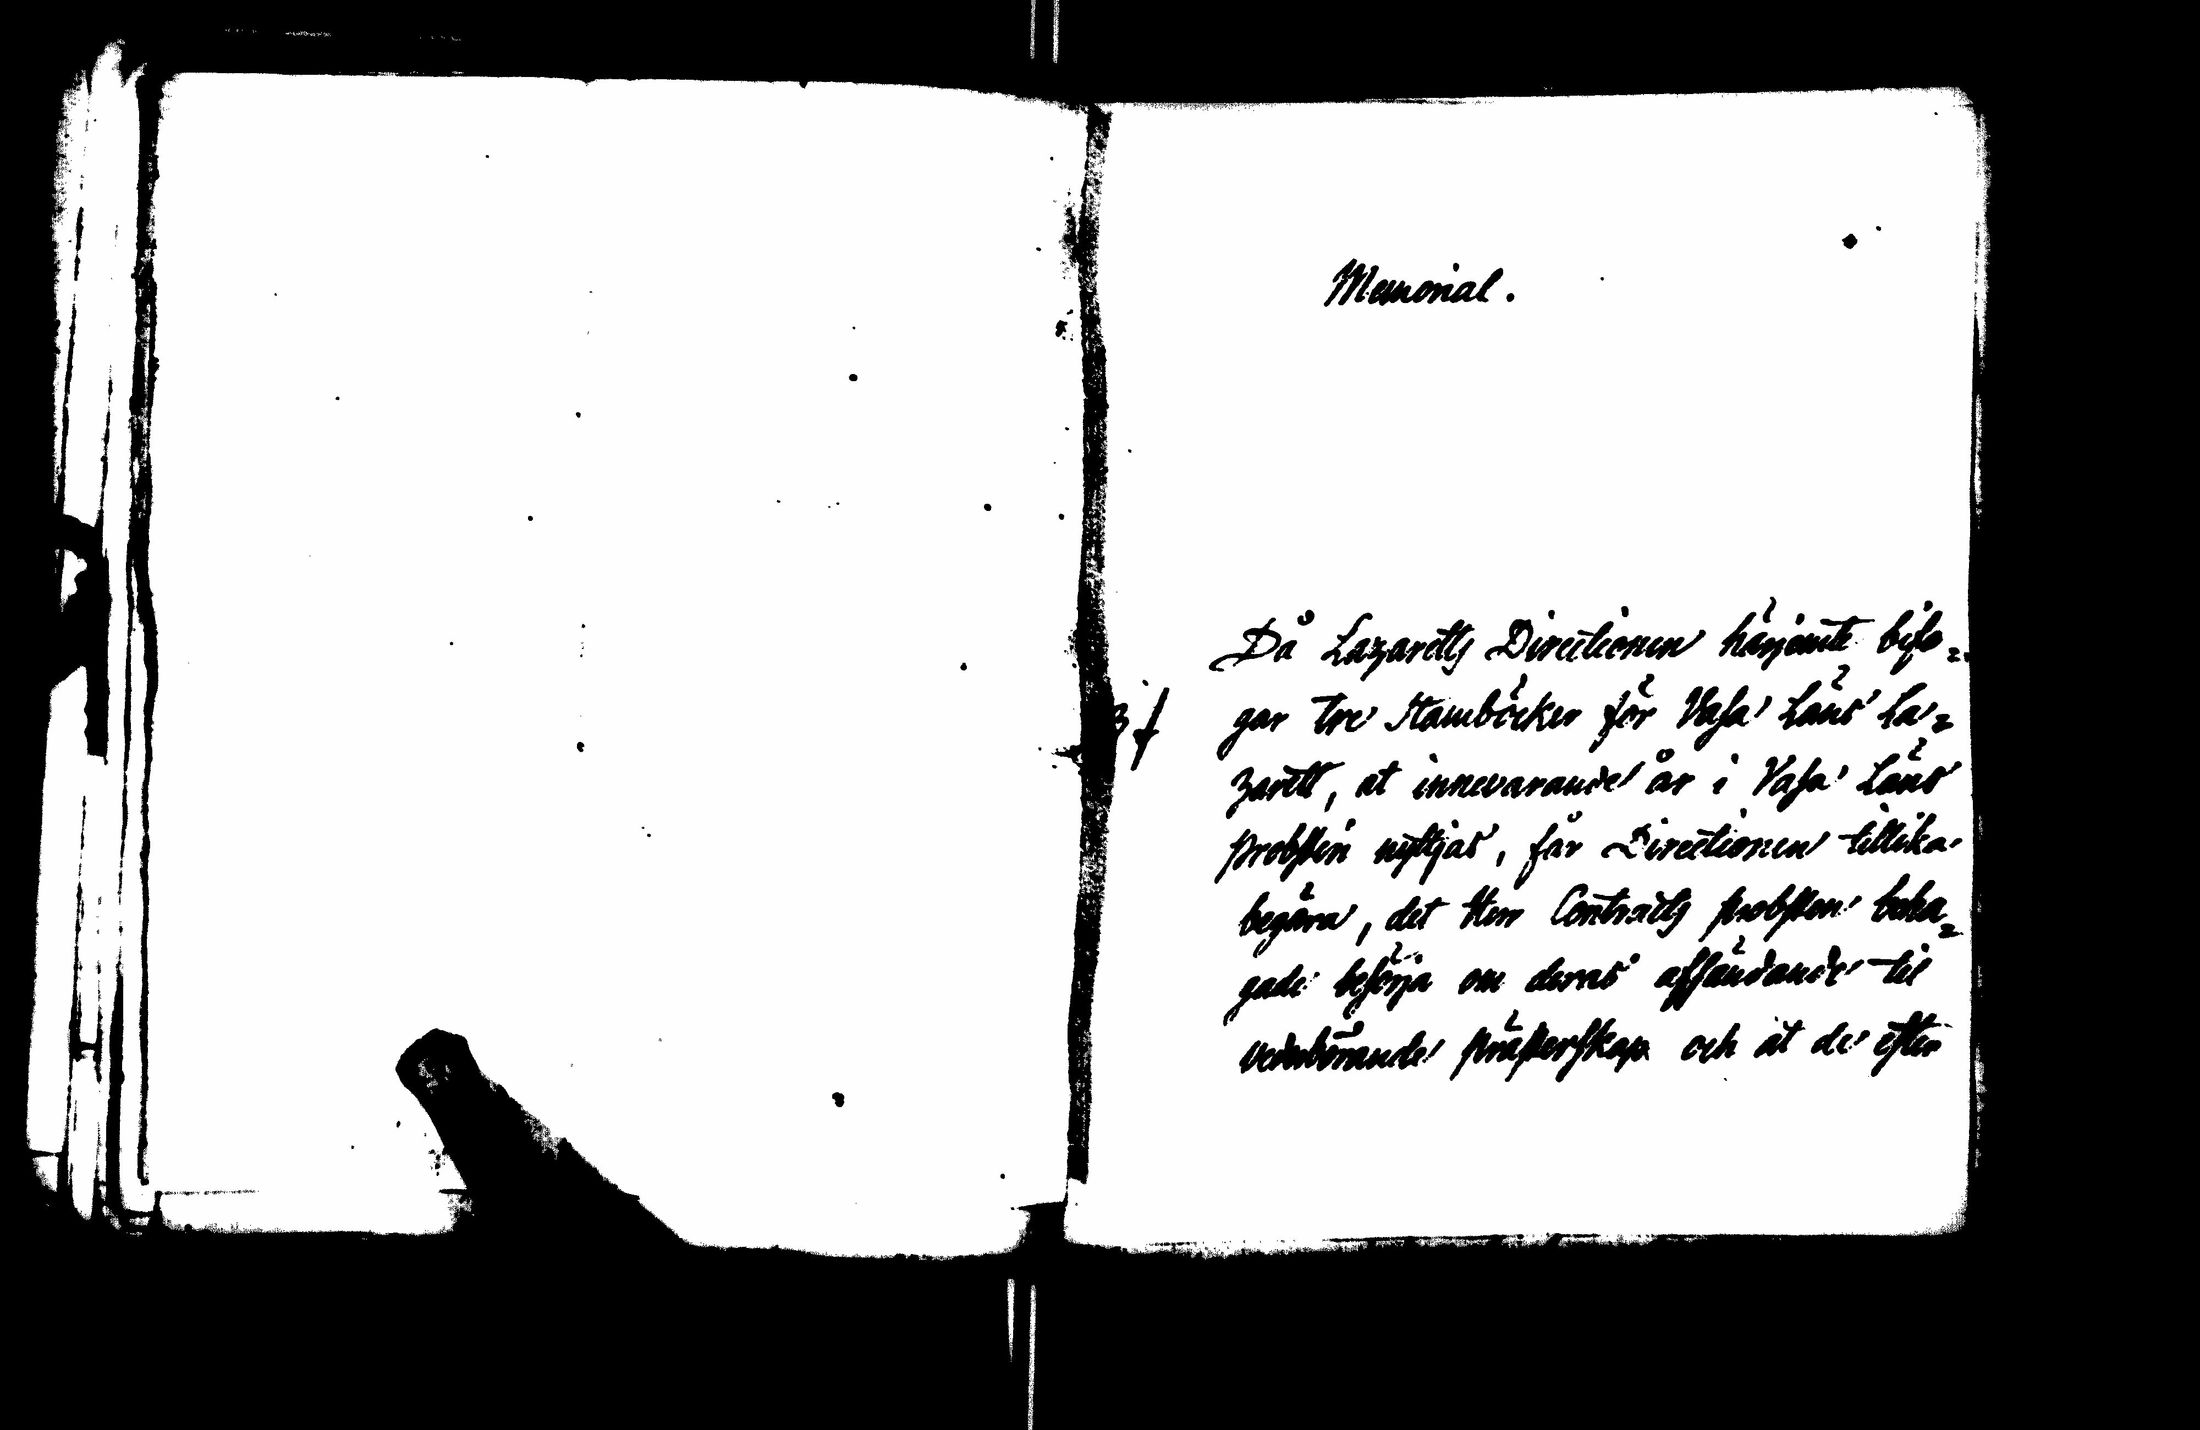 Memorial.
Då Lazaretts Directionen härjemte bifo=
gar tre Stamböcker för Vasa Läns La=
3 f
zarett, at innevarande år i Vasa Läns
Probsteri nyttjas, får Directionen tillika
begära, det Herr Contracts probsten beha=
gade besörja om deras afsändande til
vederbörande präster skap och at de efter